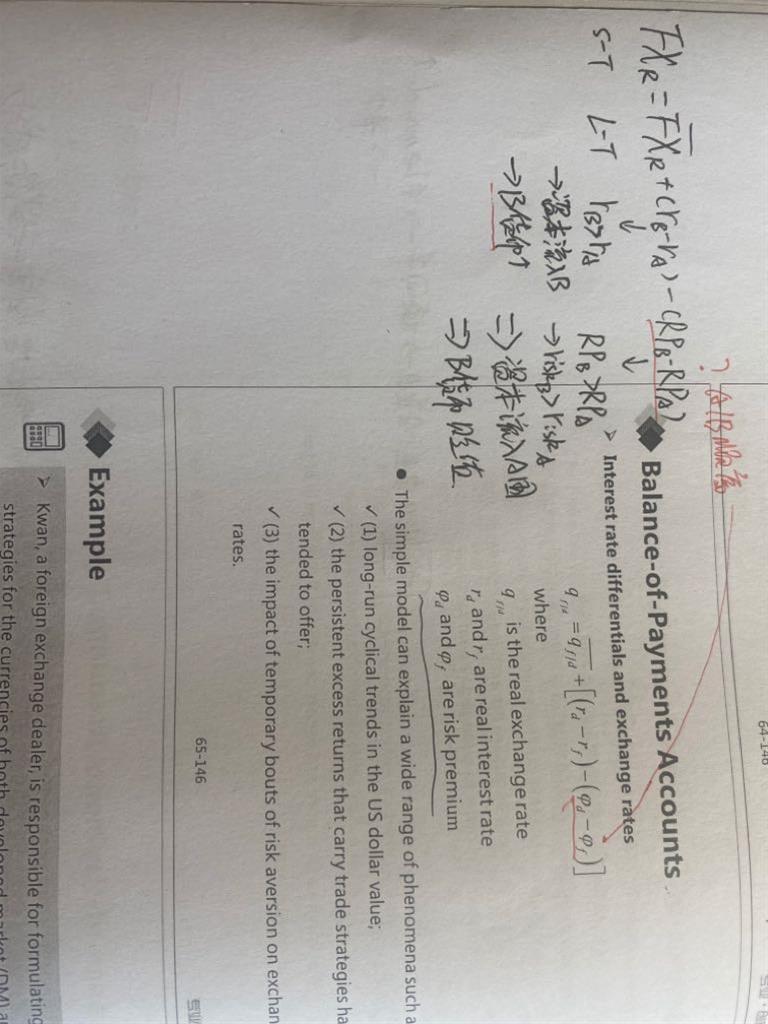 64-146
Balance-of-Payments Accounts
➢ Interest rate differentials and exchange rates
q_{f/d} = \overline{q_{f/d}} + [(r_d − r_f) − (φ_d − φ_f)]
where
q_{f/d} is the real exchange rate
r_d and r_f are real interest rate
φ_d and φ_f are risk premium
● The simple model can explain a wide range of phenomena such a
✓ (1) long-run cyclical trends in the US dollar value;
✓ (2) the persistent excess returns that carry trade strategies ha
tended to offer;
✓ (3) the impact of temporary bouts of risk aversion on exchan
rates.
65-146
专业
Example
➢ Kwan, a foreign exchange dealer, is responsible for formulating
strategies for the currencies of both developed market (DM) a
FX_R = \overline{FX}_R + (r_B − r_A) − (RP_B − RP_A)
S-T L-T r_B > r_A RP_B > RP_A
→资本流入B →risk_B > risk_A
→B货币↑ ⇒资本流入A国
⇒B货币贬值
?